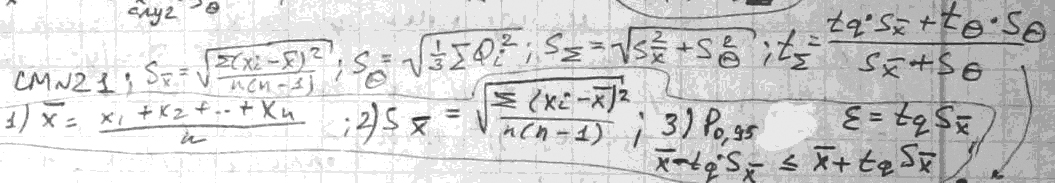 случ Sθ
см N21; S_x̄ = √(Σ(xi-x̄)²/n(n-1)); S_θ = √(1/3 Σ Q_i²); S_Σ = √(S_x̄² + S_θ²); t_Σ = (tq·S_x̄ + t_θ·S_θ)/(S_x̄ + S_θ)
1) x̄ = (x₁ + x₂ + .. + xn)/n; 2) S_x̄ = √(Σ(xi-x̄)²/n(n-1)); 3) P₀,₉₅ ε = tq S_x̄
x̄ - tq·S_x̄ ≤ x̄ + tq S_x̄